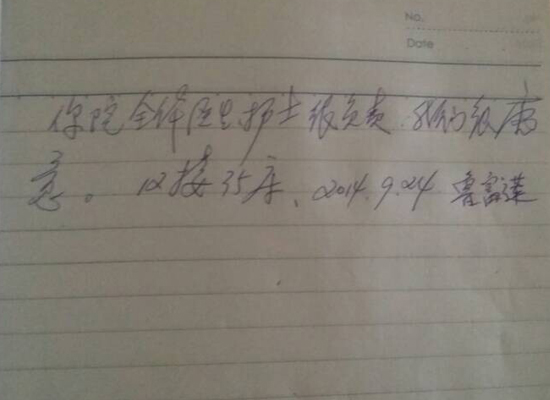 No.
Date
你院全体医生护士很负责.我们很满
意。12楼35床、2014.9.24 鲁富